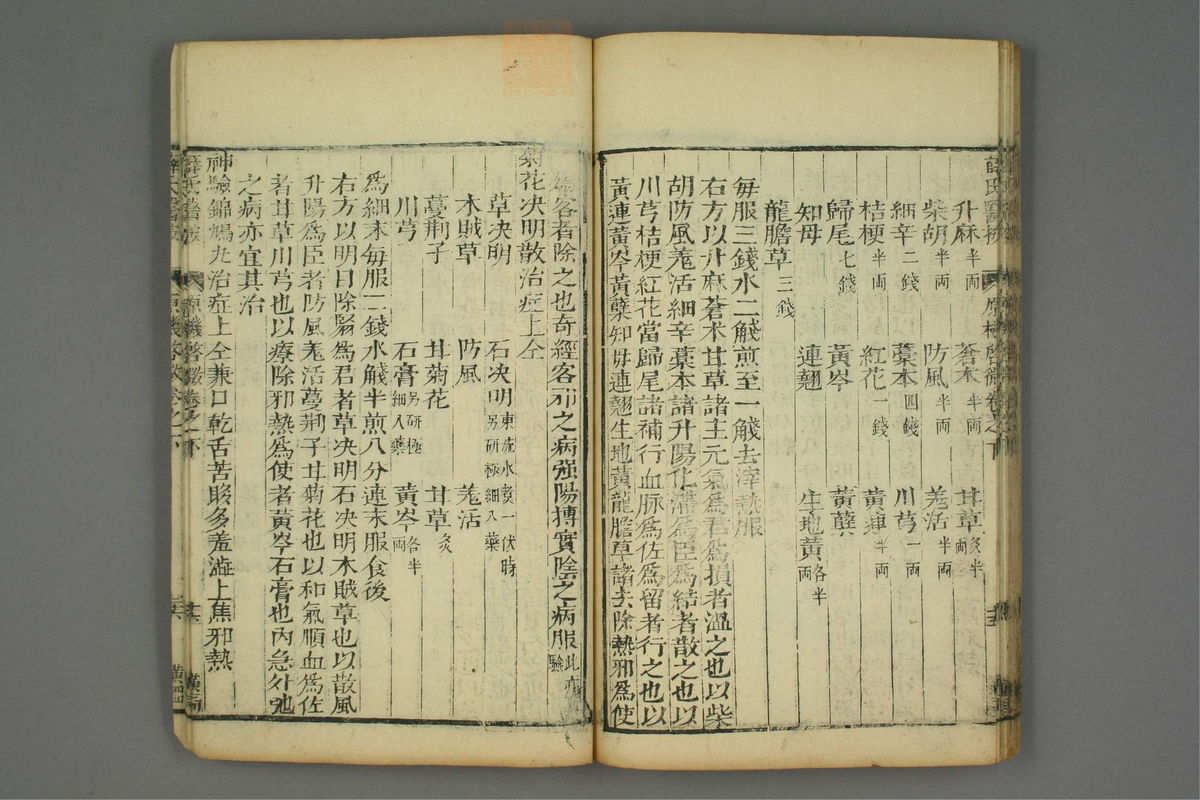 升麻半両 蒼朮半両 甘草炙半両
柴胡半両 防風半両 羗活半両
細辛二錢 藁本四錢 川芎一両
桔梗半両 紅花一錢 黃
歸尾七錢 黃岑 黃蘗
知母 連翹 生地黃各半両
龍膽草三錢
每服三錢水二觥煎至一觥去滓熱服
右方以升麻蒼朮甘草諸主元氣爲君爲損者溫之也以柴
胡防風羗活細辛藁本諸升陽化滯爲臣爲結者散之也以
川芎桔梗紅花當歸尾諸補行血脉爲佐爲留者行之也以
黃連黃岑黃蘗知毋連翹生地黃龍膽草諸去除熱邪爲使
爲客者除之也奇經客邪之病强陽搏實陰之病服此亦驗
菊花决明散治症上仝
草决明 石决明東流水煑一伏時另研極細入藥
木賊草 防風 羗活
蔓荆子 甘菊花 甘草炙
川芎 石膏另研極細入藥 黃岑各半両
爲細末每服二錢水觥半煎八分連末服食後
右方以明目除翳爲君者草决明石决明木賊草也以散風
升陽爲臣者防風羗活蔓荆子甘菊花也以和氣順血爲佐
者甘草川芎也以療除邪熱爲使者黃岑石膏也內急外弛
之病亦宜其治
神驗錦鳩丸治症上仝兼口乾舌苦眵多羞澁上焦邪熱